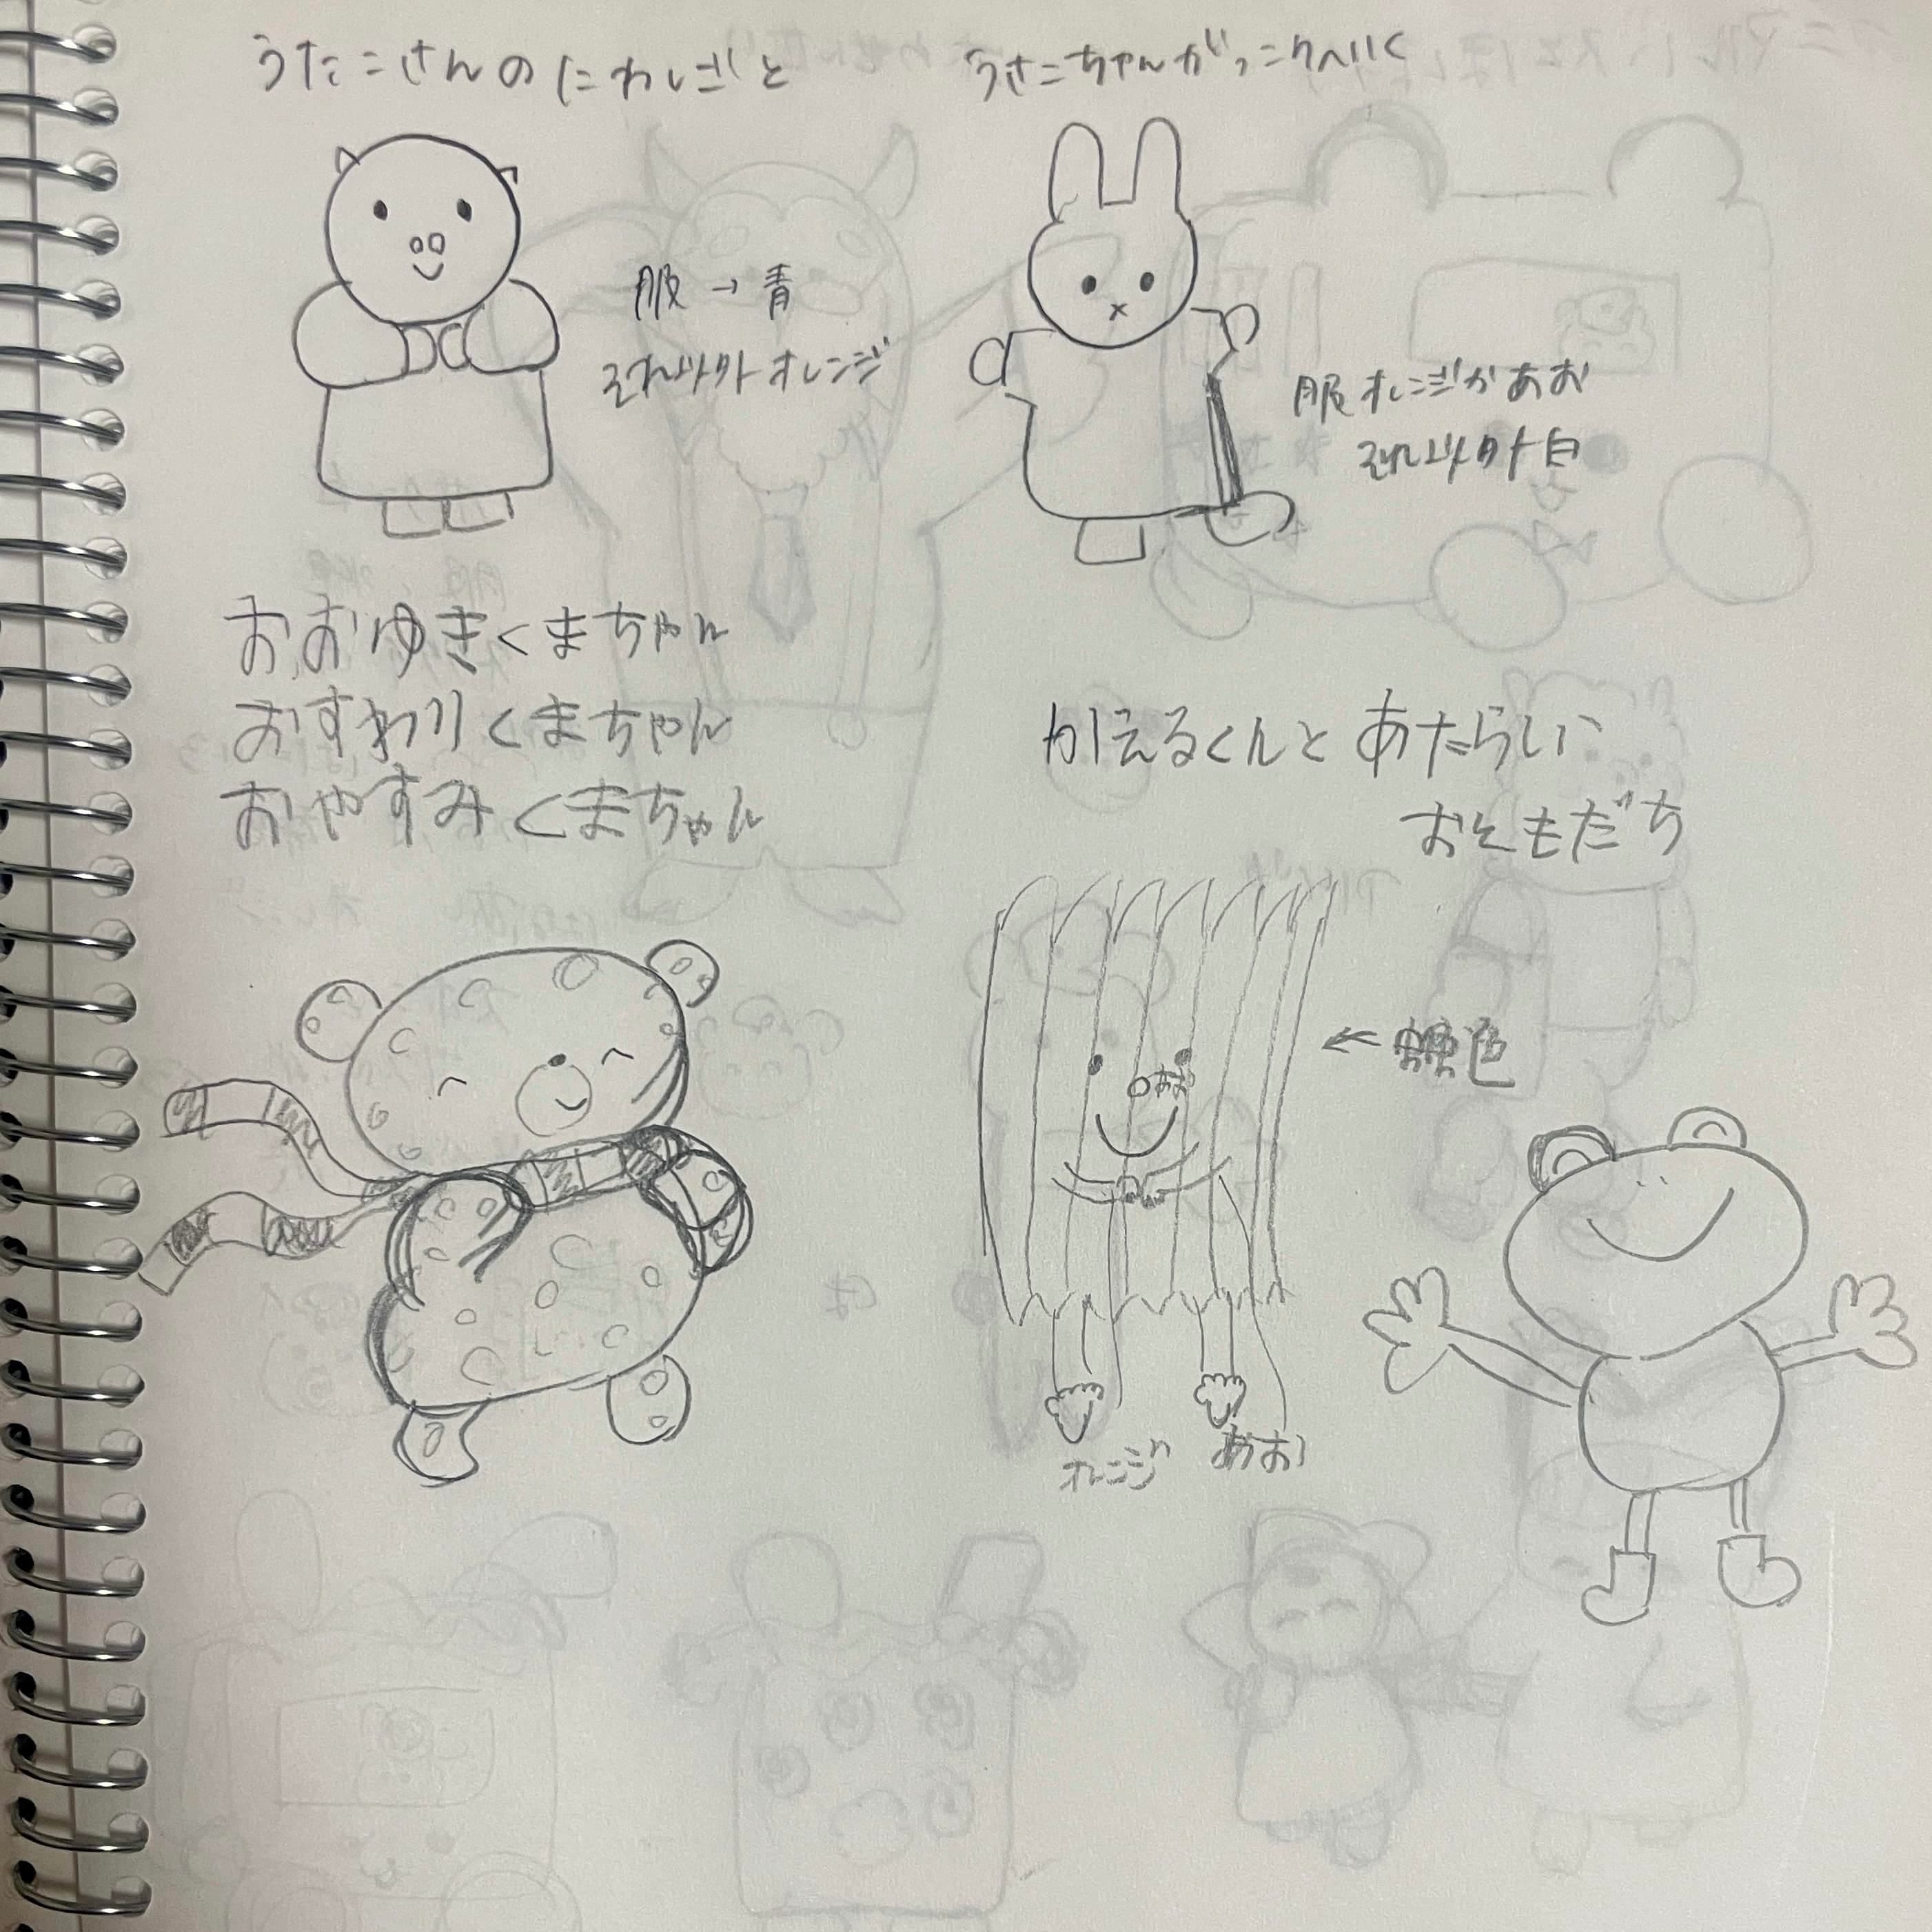 うたこさんのにわしごと
服→青
それ以外オレンジ
うさこちゃんがっこうへいく
服オレンジかあお
それ以外白
おおゆきくまちゃん
おすわりくまちゃん
おやすみくまちゃん
かえるくんとあたらしい
おともだち
←緑色
あお
オレンジ
あお